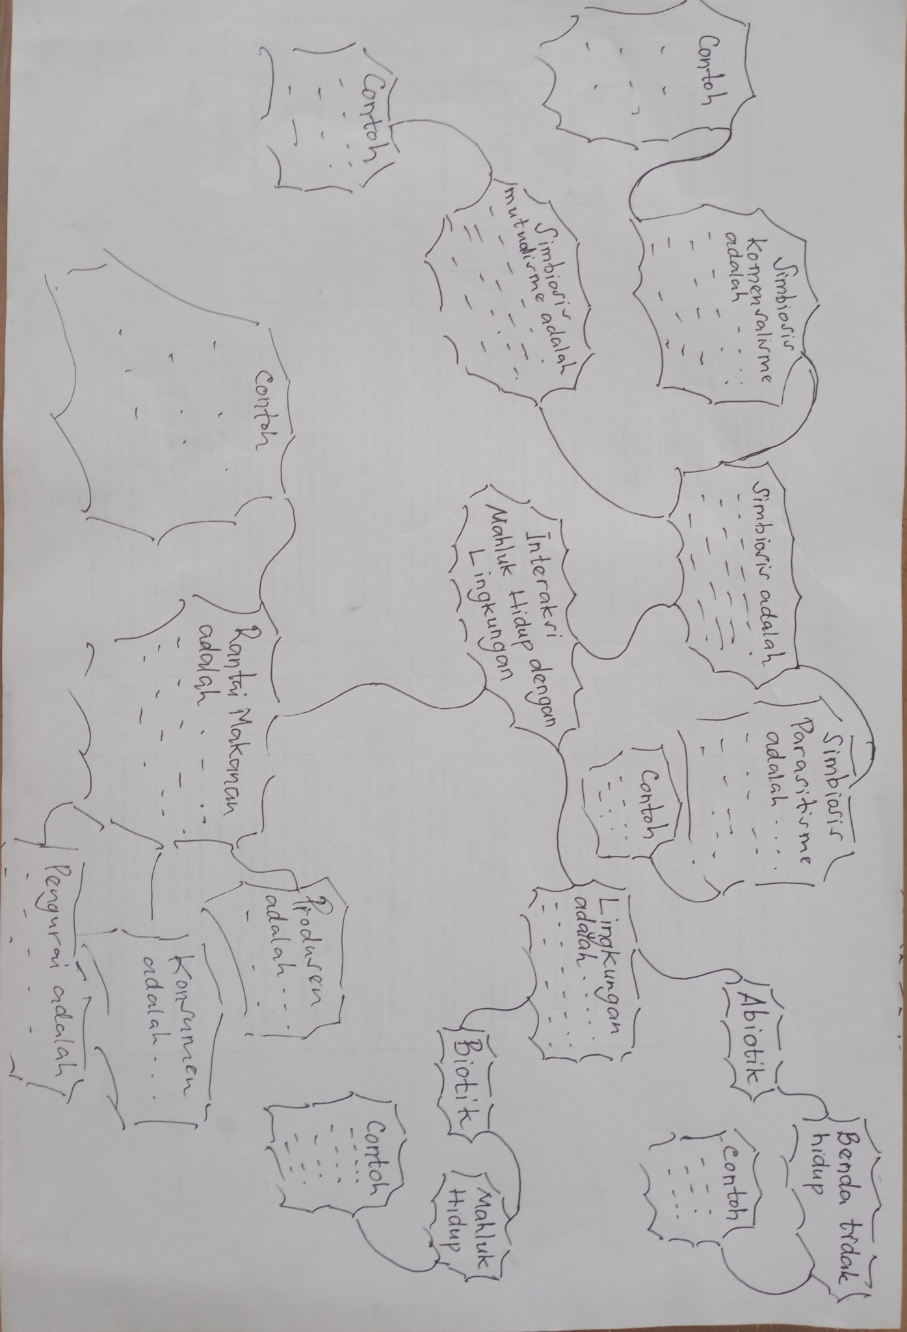 Contoh
Simbiosis
Komensalisme
adalah
Simbiosis adalah
Simbiosis
Parasitisme
adalah....
Contoh
Abiotik
Benda tidak
hidup
Contoh
Contoh
Simbiosis
mutualisme adalah
Interaksi
Mahluk Hidup dengan
Lingkungan
Lingkungan
adalah....
Biotik
Mahluk
Hidup
Contoh
Contoh
Rantai Makanan
adalah
Produsen
adalah...
Konsumen
adalah...
Pengurai adalah